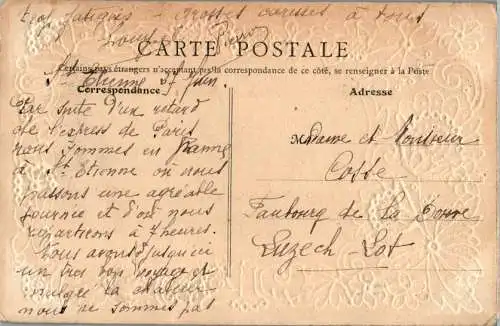 trop fatigués - grosses caresses à tous
CARTE POSTALE
Certains pays étrangers n'acceptant pas la correspondance de ce côté, se renseigner à la Poste
St Etienne 27 Juin
Correspondance
Adresse
Par suite d'un retard
de l'express de Paris
nous sommes en panne
à St Etienne où nous
passons une agréable
journée et d'où nous
repartirons à 7 heures.
Nous avons jusqu'ici
un très bon voyage et
malgré la chaleur
nous ne sommes pas
Madame et Monsieur
Cosse
Faubourg de La
Luzech - Lot